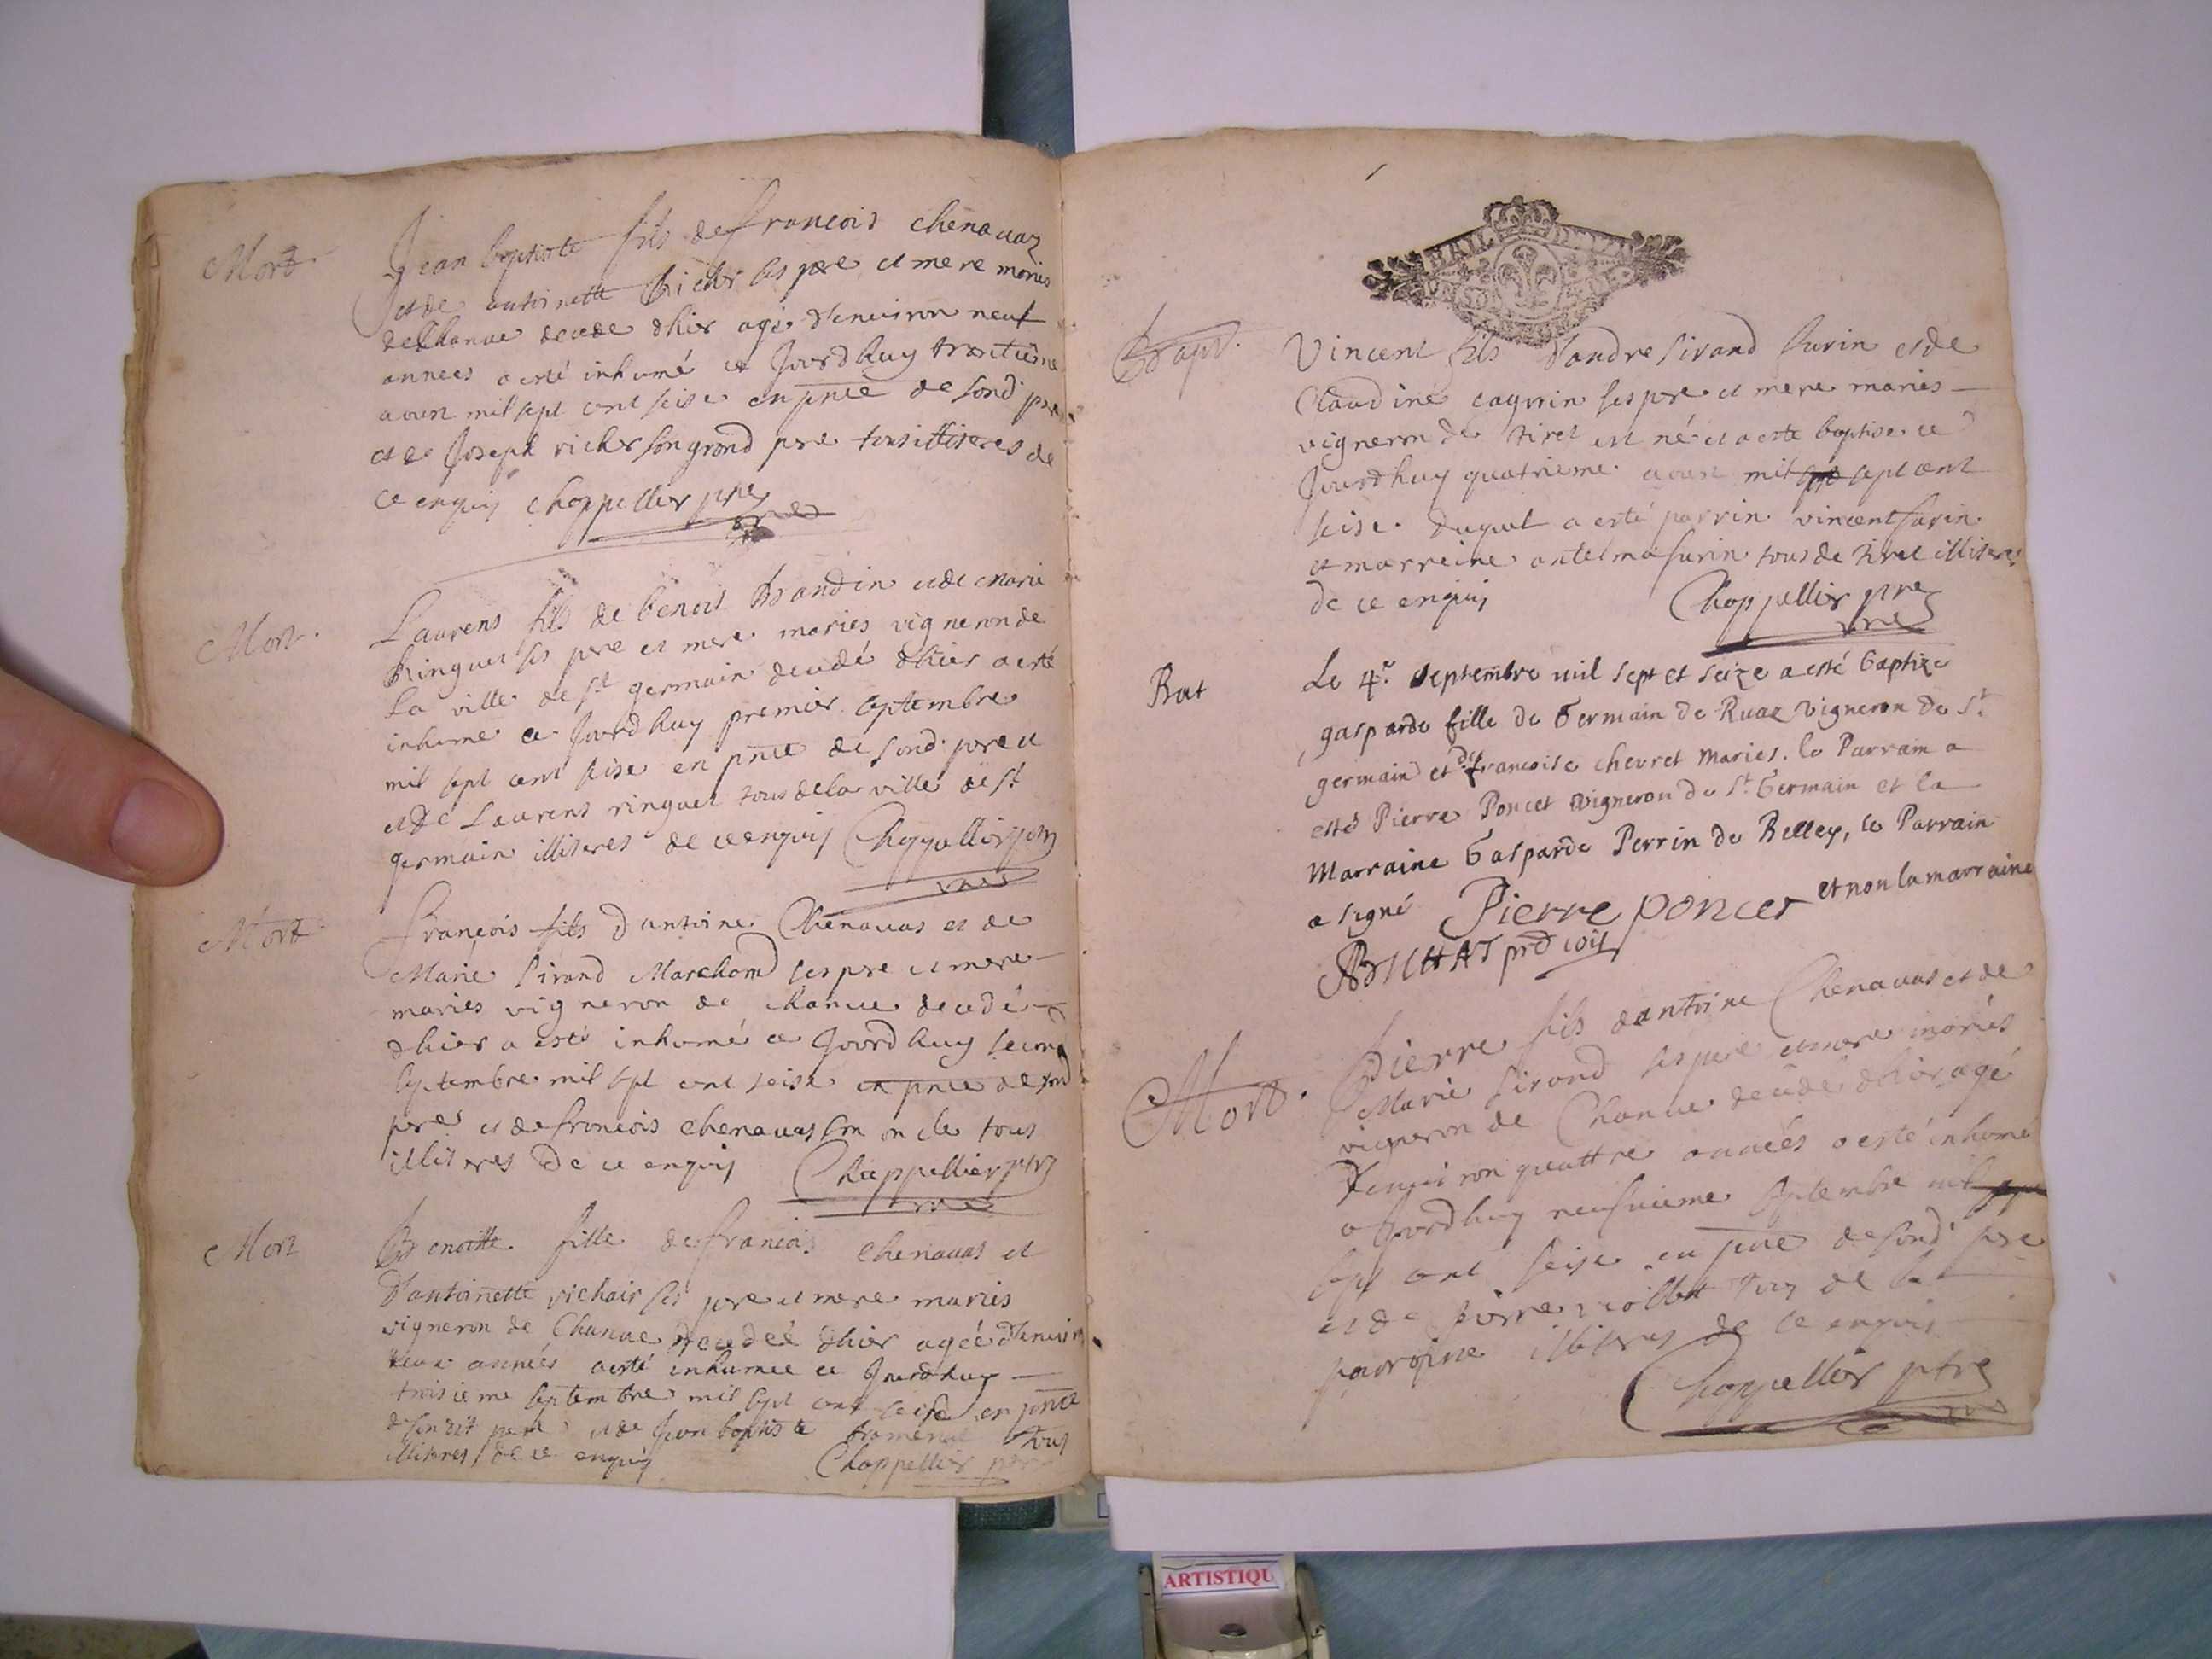 Mort
Jean baptiste fils de francois chenavaz
et de antoinette Richer ses pere et mere mariés
de Chanue decede dhier agé d'environ neuf
annees a esté inhumé ce Jourdhuy trentiesme
aoust mil sept cent seise en pnce de sond pere
et de Joseph richer son grand pere tous illiteres de
ce enquis chappellier ptre
Mort.
Laurens fils de benois Brandin et de marie
Ringuet ses pere et mere maries vigneron de
la ville de st germain decedé dhier a esté
inhume ce Jourdhuy premier septembre
mil sept cent seise en pnce de sond. pere et
et de Laurens ringuet tous de la ville de st
germain illiteres de ce enquis Chappellier ptre
Mort
François fils d'antoine Chenavas et de
Marie Sirand Marchand ses pere et mere
maries vigneron de chanue decedé
dhier a esté inhumé ce Jourdhuy second
septembre mil sept cent seise en pnce de sond
pere et de francois chenavas son oncle tous
illiteres de ce enquis Chappellier ptre
Mort
Benoitte fille de francois chenavas et
d'antoinette richair ses pere et mere maries
vigneron de Chanue decedeé dhier ageé d'environ
deux années a esté inhumee ce Jourdhuy
troisieme septembre mil sept cent seise en pnce
de sondit pere et de Jean baptiste tous
illiteres de ce enquis Chappellier ptre
Bapt.
Vincent fils d'andre Sirand Surin et de
Claudine cagnin ses pere et mere maries
vigneron de tiret est né et a este baptise ce
Jourdhuy quatrieme aoust mil sept cent
seise. duquel a esté parrin vincent surin
et marreine antelma surin tous de tiret illiteres
de ce enquis Chappellier ptre
Bat
Le 4e. septembre mil sept et seize a esté baptize
gasparde fille de Germain de Ruaz vigneron de St.
germain et de francoise chevret mariés. le Parrain a
esté Pierre Poncet vigneron de St. Germain et la
Marraine Gasparde Perrin de Belley, le Parrain
a signé Pierre poncet et non la marraine
BRILLAT
Mort.
Pierre fils d'antoine Chenavas et de
Marie Sirand ses pere et mere mariés
vigneron de Chanue decedé dhier agé
d'environ quattre années a esté inhumé
ce Jourdhuy neufvieme septembre mil
sept cent seise en pnce de sond. pere
et de pierre tous de la
parroisse illiteres de ce enquis
Chappellier ptre
ARTISTIQU